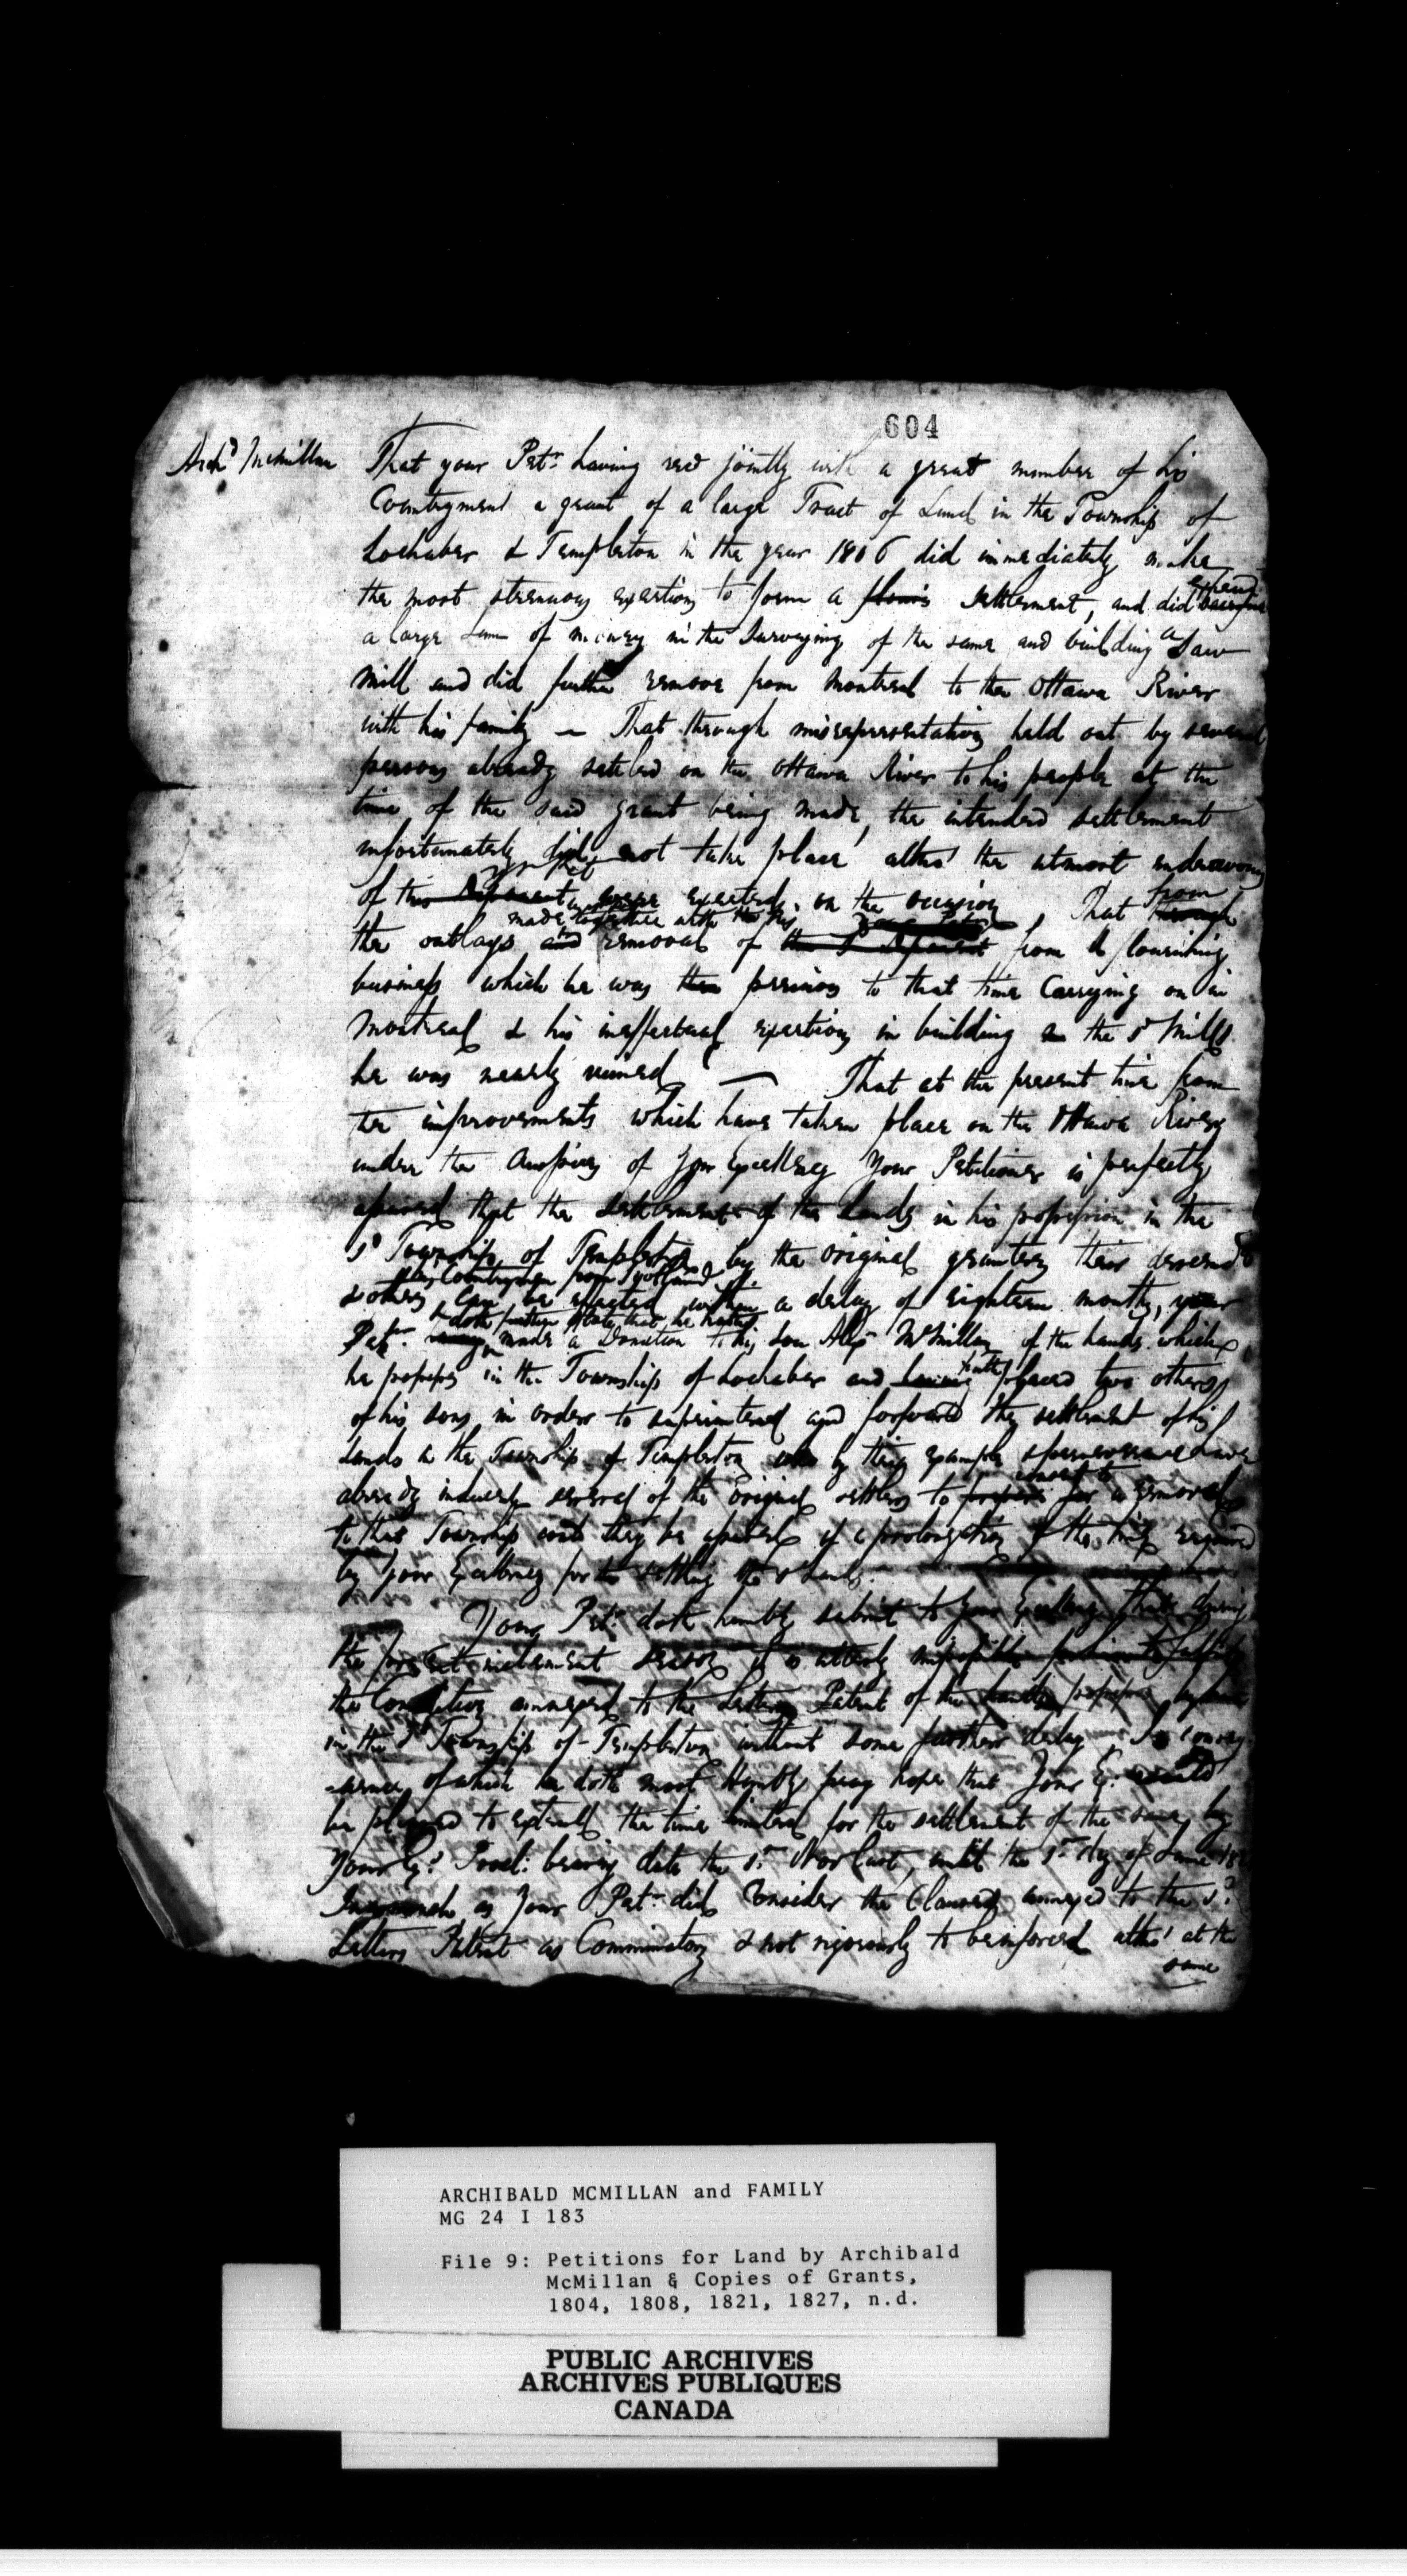 604
Archd McMillan
That your Petr. having recd jointly with a great number of his
Countrymen a grant of a large Tract of Land in the Township of
Lochaber & Templeton in the year 1806 did immediately make
the most strenuous exertions to form a settlement, and did expend
a large Sum of money in the Surveying of the same and building a Saw
Mill and did further remove from Montreal to the Ottawa River
with his family — That through misrepresentation held out by several
persons already settled on the Ottawa River to his people at the
time of the said grant being made, the intended settlement
unfortunately did not take place altho' the utmost endeavours
of were exerted on the occasion That from
the outlays made together with the removal of from a flourishing
business which he was previous to that time Carrying on in
Montreal & his ineffectual exertions in building the sd Mills
he was nearly ruined — That at the present time from
the improvements which have taken place on the Ottawa River
under the Auspices of Your Excellency Your Petitioner is perfectly
assured that the settlement of the Lands in his possession in the
sd Township of Templeton by the original grantees their descendts
& other Countrymen from Scotland can be effected within a delay of eighteen months, your
Petr. doth further state that he hath made a Donation to his Son Alexr McMillan of the lands which
he possesses in the Township of Lochaber and hath placed two others
of his sons in order to superintend and forward the settlement of his
Lands in the Township of Templeton who by their example & perseverance have
already induced several of the original settlers to consent to a removal
to that Township could they be assured of a prolongation of the time required
by your Excellency for the settling the sd Lands.
Your Petr. doth humbly submit to Your Excellency that during
the present inclement season it is utterly impossible
the Conditions annexed to the Letters Patent of the
in the sd Township of Templeton without some further delay, In consequence
of which he doth most Humbly pray hope that Your E.
be pleased to extend the time limited for the settlement of the same by
Your Ex. Procl: bearing date the 1st Nov last, until the 1st day of June
Inasmuch as Your Petr. did Consider the Clauses annexed to the sd
Letters Patent as Comminatory & not rigorously to be inforced altho' at the
same
ARCHIBALD MCMILLAN and FAMILY
MG 24 I 183
File 9: Petitions for Land by Archibald
McMillan & Copies of Grants,
1804, 1808, 1821, 1827, n.d.
PUBLIC ARCHIVES
ARCHIVES PUBLIQUES
CANADA